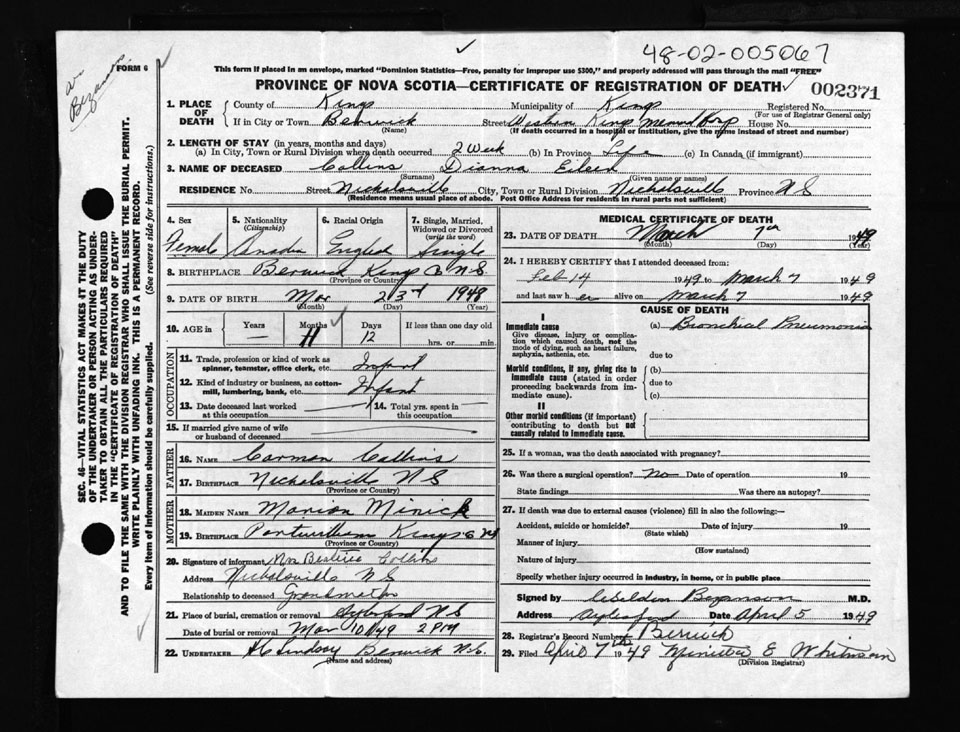 48-02-005067
Bezanson
FORM 6
This form if placed in an envelope, marked "Dominion Statistics—Free, penalty for improper use $300," and properly addressed will pass through the mail "FREE"
PROVINCE OF NOVA SCOTIA—CERTIFICATE OF REGISTRATION OF DEATH 002371
1. PLACE OF DEATH County of Kings Municipality of Kings Registered No.
(For use of Registrar General only)
If in City or Town Berwick Street Western Kings Memorial Hosp House No.
(Name) (If death occurred in a hospital or institution, give the name instead of street and number)
2. LENGTH OF STAY (in years, months and days)
(a) In City, Town or Rural Division where death occurred 2 Week (b) In Province Life (c) In Canada (if immigrant)
3. NAME OF DECEASED Collins Dianna Eileen
(Surname) (Given name or names)
RESIDENCE No. Street Nicholsville City, Town or Rural Division Nicholsville Province N S
(Residence means usual place of abode. Post Office Address for residents in rural parts not sufficient)
4. Sex 5. Nationality (Citizenship) 6. Racial Origin 7. Single, Married, Widowed or Divorced (write the word)
Female Canadian English Single
8. BIRTHPLACE Berwick Kings Co N.S.
(Province or Country)
9. DATE OF BIRTH Mar 23rd 1948
(Month) (Day) (Year)
10. AGE in Years Months Days If less than one day old
— 11 12 hrs. or min.
OCCUPATION
11. Trade, profession or kind of work as spinner, teamster, office clerk, etc. Infant
12. Kind of industry or business, as cotton-mill, lumbering, bank, etc. Infant
13. Date deceased last worked at this occupation 14. Total yrs. spent in this occupation
15. If married give name of wife or husband of deceased
FATHER
16. NAME Carman Collins
17. BIRTHPLACE Nicholsville N S
(Province or Country)
MOTHER
18. MAIDEN NAME Marion Minick
19. BIRTHPLACE Portwilliam Kings Co N S
(Province or Country)
20. Signature of informant Mrs Beatrice Collins
Address Nicholsville N S
Relationship to deceased Grandmother
21. Place of burial, cremation or removal Aylesford N.S
Date of burial or removal Mar 10/49 2 PM
22. UNDERTAKER H C Lindsay Berwick N.S.
(Name and address)
MEDICAL CERTIFICATE OF DEATH
23. DATE OF DEATH March 7th 1949
(Month) (Day) (Year)
24. I HEREBY CERTIFY that I attended deceased from:
Feb 14 1949 to March 7 1949
and last saw her alive on March 7 1949
CAUSE OF DEATH
I
Immediate cause (a) Bronchial Pneumonia
Give disease, injury or complication which caused death, not the mode of dying, such as heart failure, asphyxia, asthenia, etc. due to
Morbid conditions, if any, giving rise to immediate cause (stated in order proceeding backwards from immediate cause). (b) due to (c)
II
Other morbid conditions (if important) contributing to death but not causally related to immediate cause.
25. If a woman, was the death associated with pregnancy?
26. Was there a surgical operation? No Date of operation 19
State findings Was there an autopsy?
27. If death was due to external causes (violence) fill in also the following:—
Accident, suicide or homicide? Date of injury 19
(State which)
Manner of injury
(How sustained)
Nature of injury
Specify whether injury occurred in industry, in home, or in public place
Signed by Weldon Bezanson M.D.
Address Aylesford Date April 5 1949
28. Registrar's Record Number Berwick
29. Filed April 7th 1949 E Whitman
(Division Registrar)
SEC. 46—VITAL STATISTICS ACT MAKES IT THE DUTY
OF THE UNDERTAKER OR PERSON ACTING AS UNDER-
TAKER TO OBTAIN ALL THE PARTICULARS REQUIRED
IN THE "CERTIFICATE OF REGISTRATION OF DEATH" AND
TO FILE THE SAME WITH THE DIVISION REGISTRAR WHO SHALL ISSUE THE BURIAL PERMIT.
WRITE PLAINLY WITH UNFADING INK. THIS IS A PERMANENT RECORD.
Every item of information should be carefully supplied. (See reverse side for instructions.)